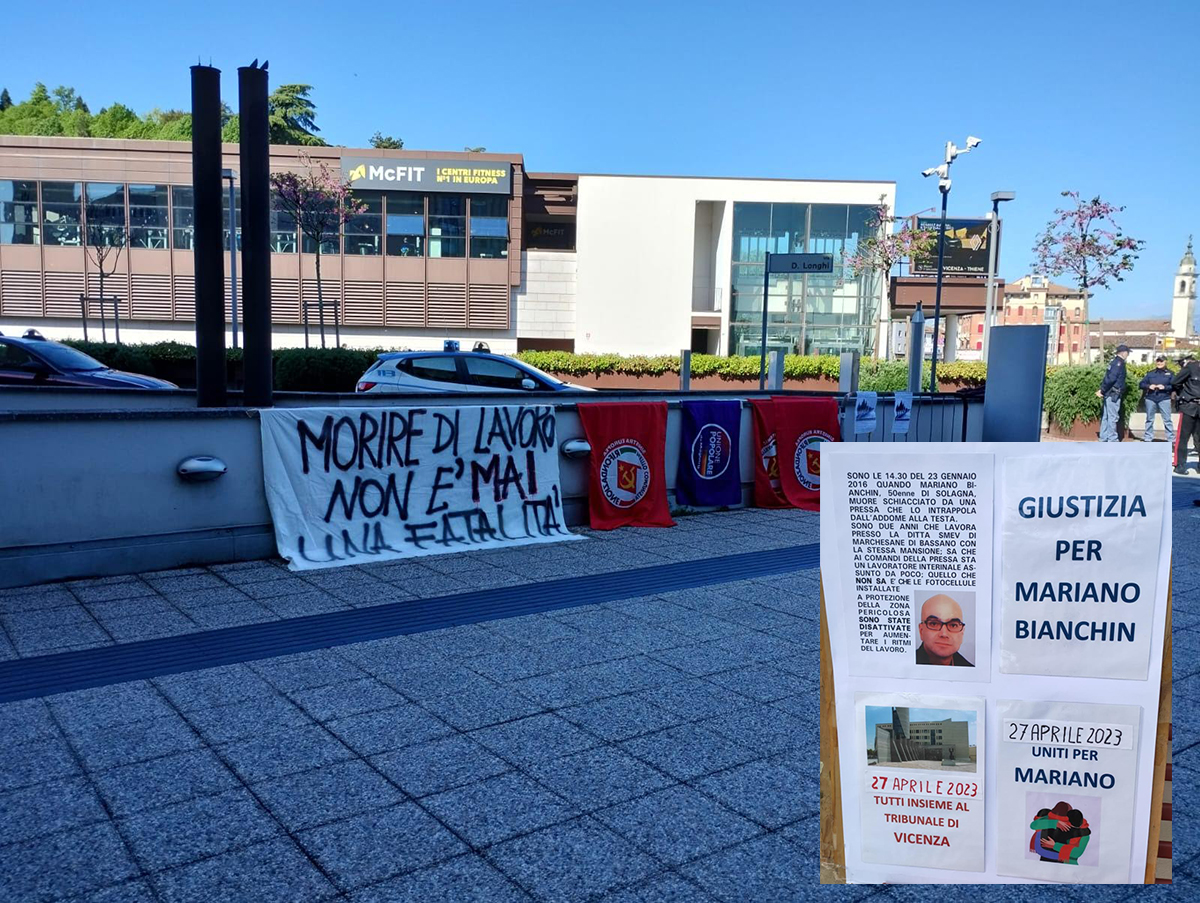 McFIT
I CENTRI FITNESS
N°1 IN EUROPA
McFIT
D. Longhi
VICENZA - THIENE
113
MORIRE DI LAVORO
NON E' MAI
UNA FATALITA'
UNIONE
POPOLARE
RIFONDAZIONE
SONO LE 14.30 DEL 23 GENNAIO
2016 QUANDO MARIANO BI-
ANCHIN, 50enne DI SOLAGNA,
MUORE SCHIACCIATO DA UNA
PRESSA CHE LO INTRAPPOLA
DALL'ADDOME ALLA TESTA.
SONO DUE ANNI CHE LAVORA
PRESSO LA DITTA SMEV DI
MARCHESANE DI BASSANO CON
LA STESSA MANSIONE; SA CHE
AI COMANDI DELLA PRESSA STA
UN LAVORATORE INTERINALE AS-
SUNTO DA POCO; QUELLO CHE
NON SA E' CHE LE FOTOCELLULE
INSTALLATE
A PROTEZIONE
DELLA ZONA
PERICOLOSA
SONO STATE
DISATTIVATE
PER AUMEN-
TARE I RITMI
DEL LAVORO.
GIUSTIZIA
PER
MARIANO
BIANCHIN
27 APRILE 2023
TUTTI INSIEME AL
TRIBUNALE DI
VICENZA
27 APRILE 2023
UNITI PER
MARIANO